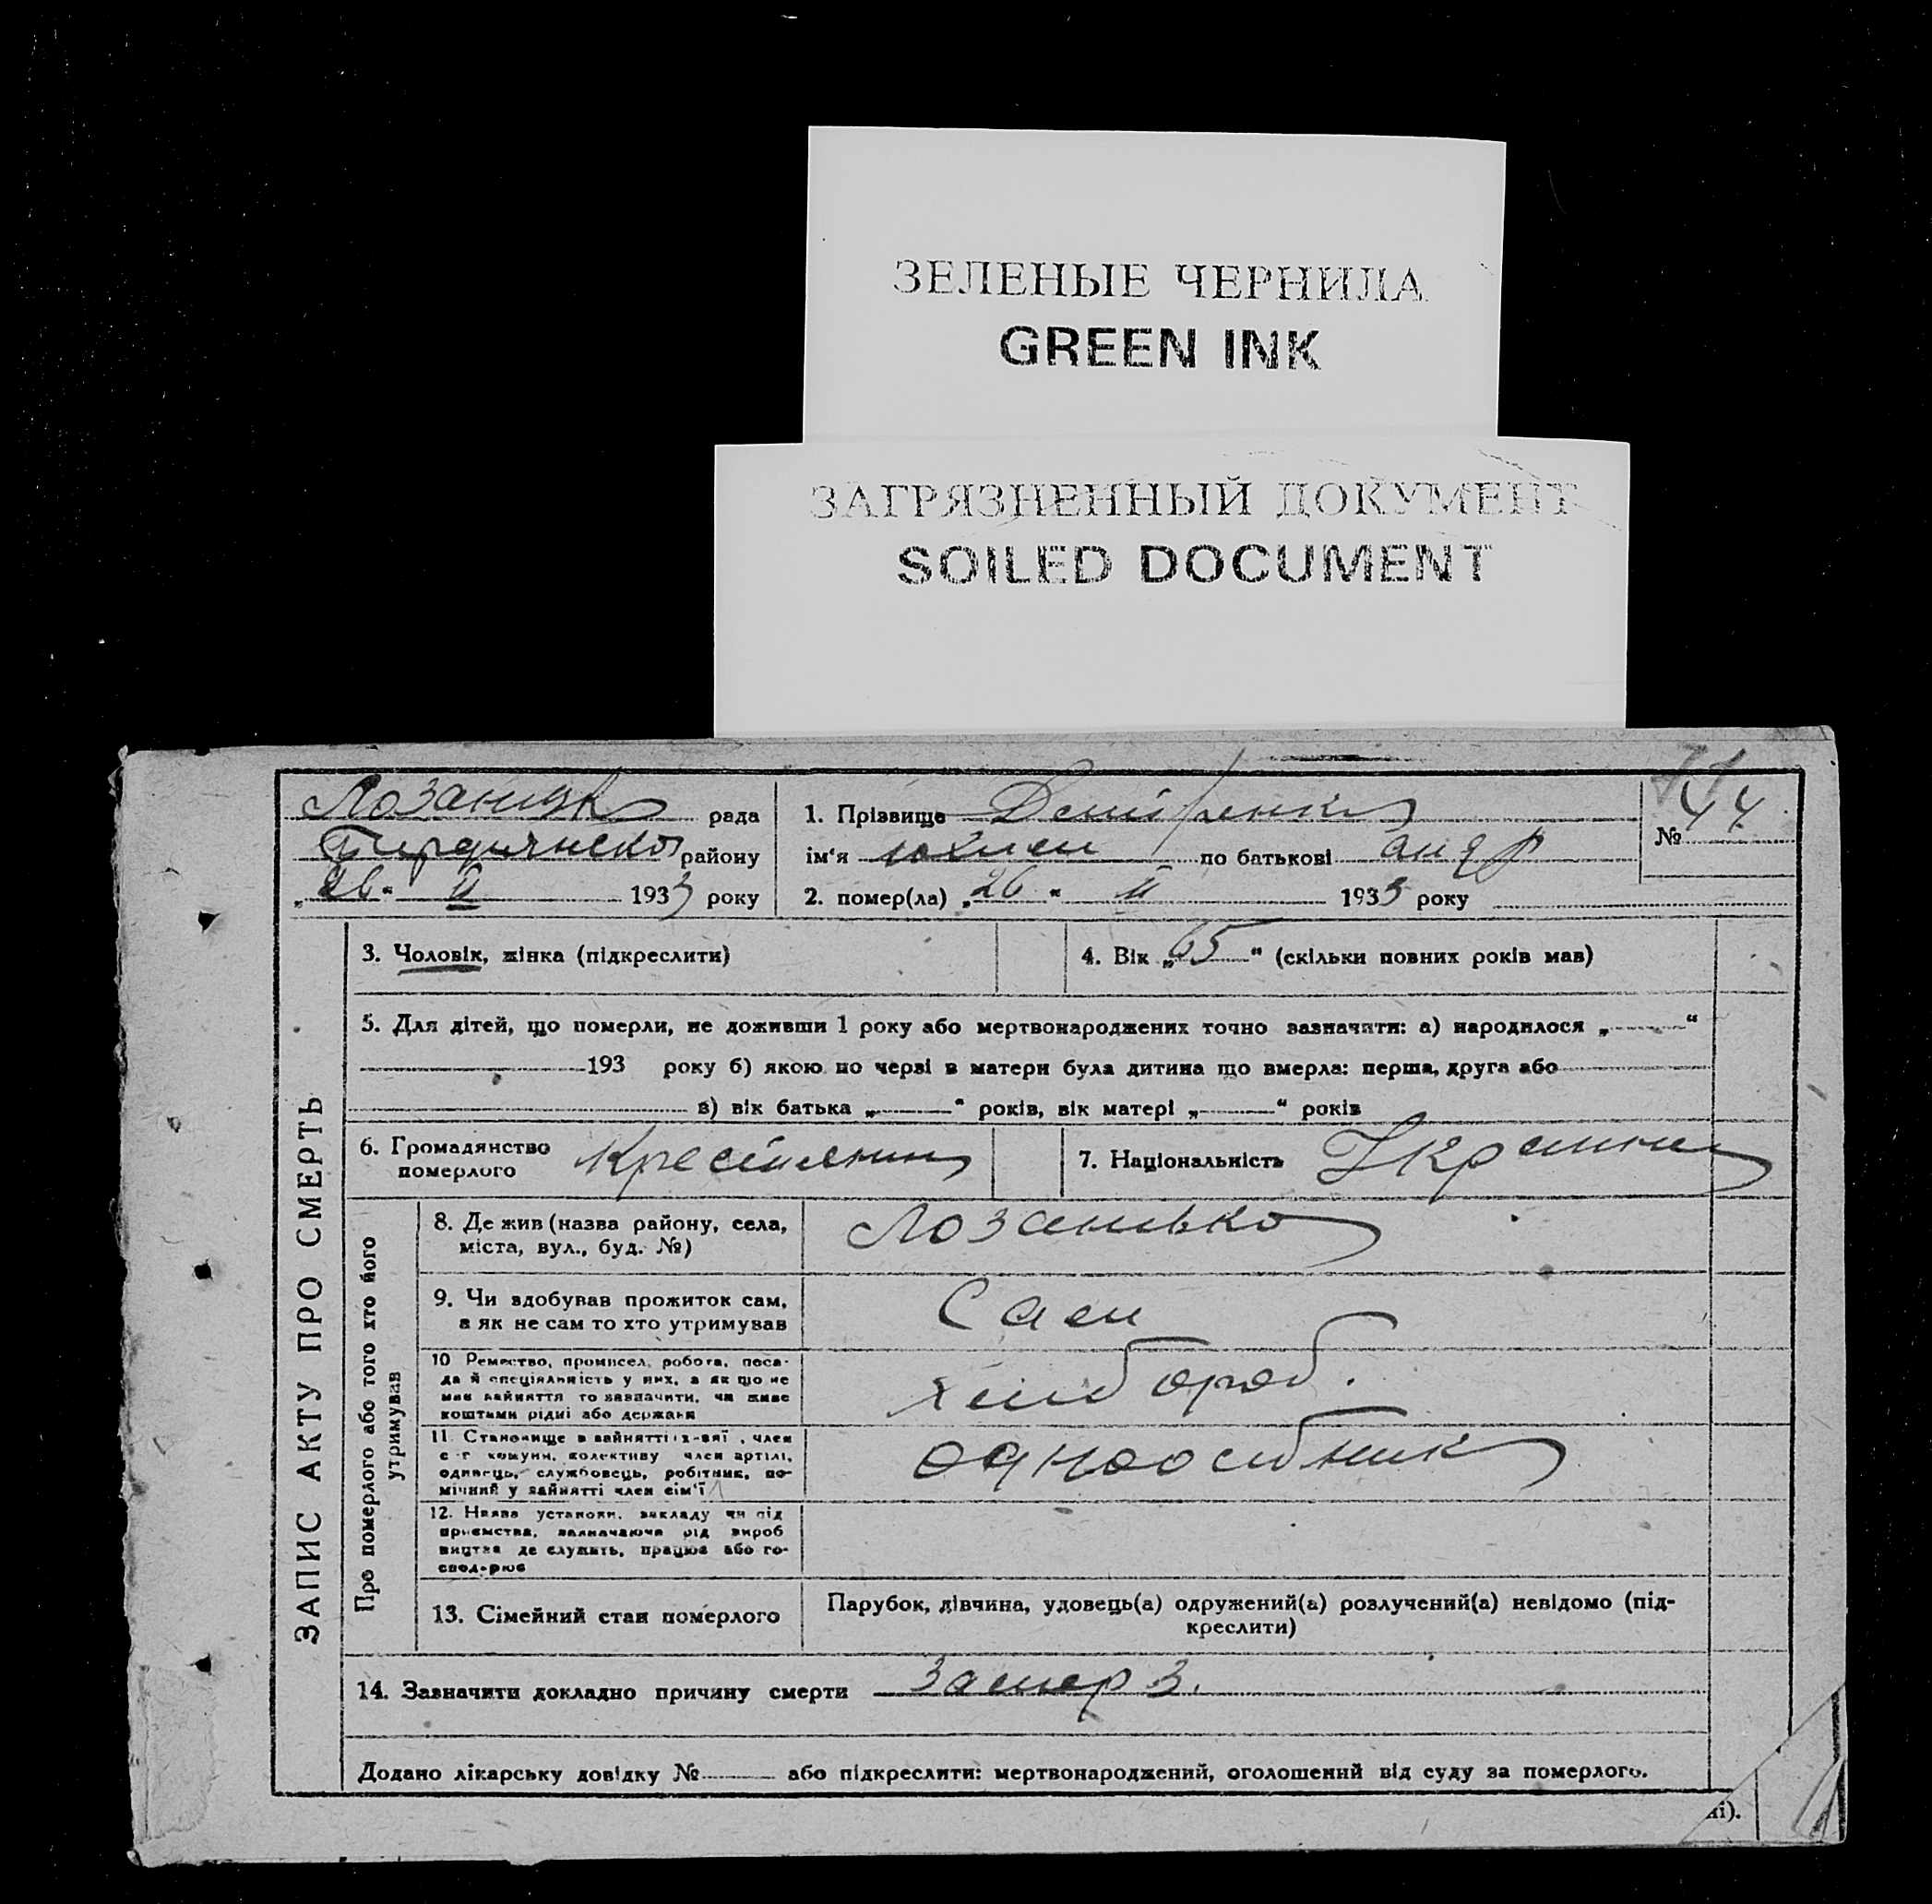 ЗЕЛЕНЫЕ ЧЕРНИЛА
GREEN INK
ЗАГРЯЗНЕННЫЙ ДОКУМЕНТ
SOILED DOCUMENT
рада
району
„26“ II 1933 року
1. Прізвище
ім‘я Юхим по батькові Андр
2. помер(ла) „26“ II 1933 року
№ 44
ЗАПИС АКТУ ПРО СМЕРТЬ
3. Чоловік, жінка (підкреслити)
4. Вік „65“ (скільки повних років мав)
5. Для дітей, що померли, не доживши 1 року або мертвонароджених точно зазначити: а) народилося „ “
193 року б) якою по черзі в матери була дитина що вмерла: перша, друга або
в) вік батька „ “ років, вік матері „ “ років
6. Громадянство
померлого
7. Національність
Про померлого або того хто його
утримував
8. Де жив (назва району, села,
міста, вул., буд. №)
9. Чи здобував прожиток сам,
а як не сам то хто утримував
Сам
10 Ремество, промисел, робота, поса-
да й спеціяльність у них, а як що не
мав зайняття то зазначити, чи живе
коштами рідні або держави
хлібороб.
11. Становище в зайнятті: , член
с-г комуни, колективу член артілі,
одинець, службовець, робітник, по-
мічний у зайнятті член сім‘ї
одноосібник
12. Назва установи, закладу чи під
приємства, зазначаючи рід вироб
ництва де служить, працює або го-
сподарює
13. Сімейний стан померлого
Парубок, дівчина, удовець(а) одружений(а) розлучений(а) невідомо (під-
креслити)
14. Зазначити докладно причину смерти Замерз.
Додано лікарську довідку № або підкреслити: мертвонароджений, оголошений від суду за померлого.
ні).